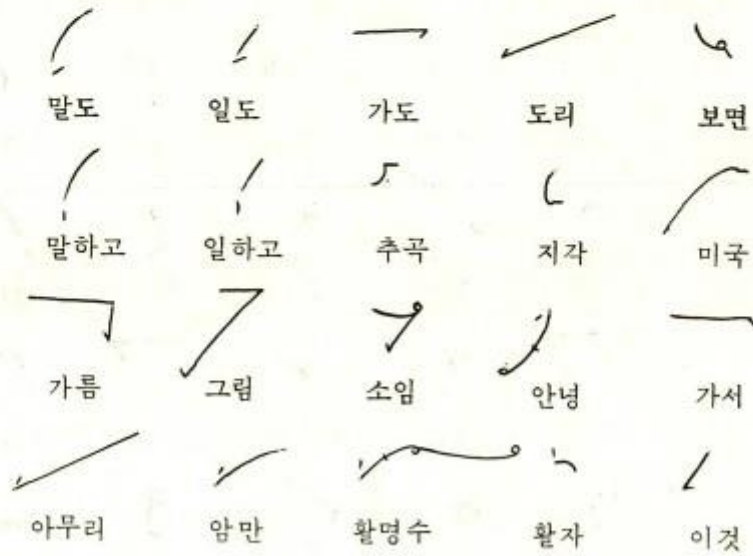 말도 일도 가도 도리 보면
말하고 일하고 추곡 지각 미국
가름 그림 소임 안녕 가서
아무리 암만 활명수 활자 이것